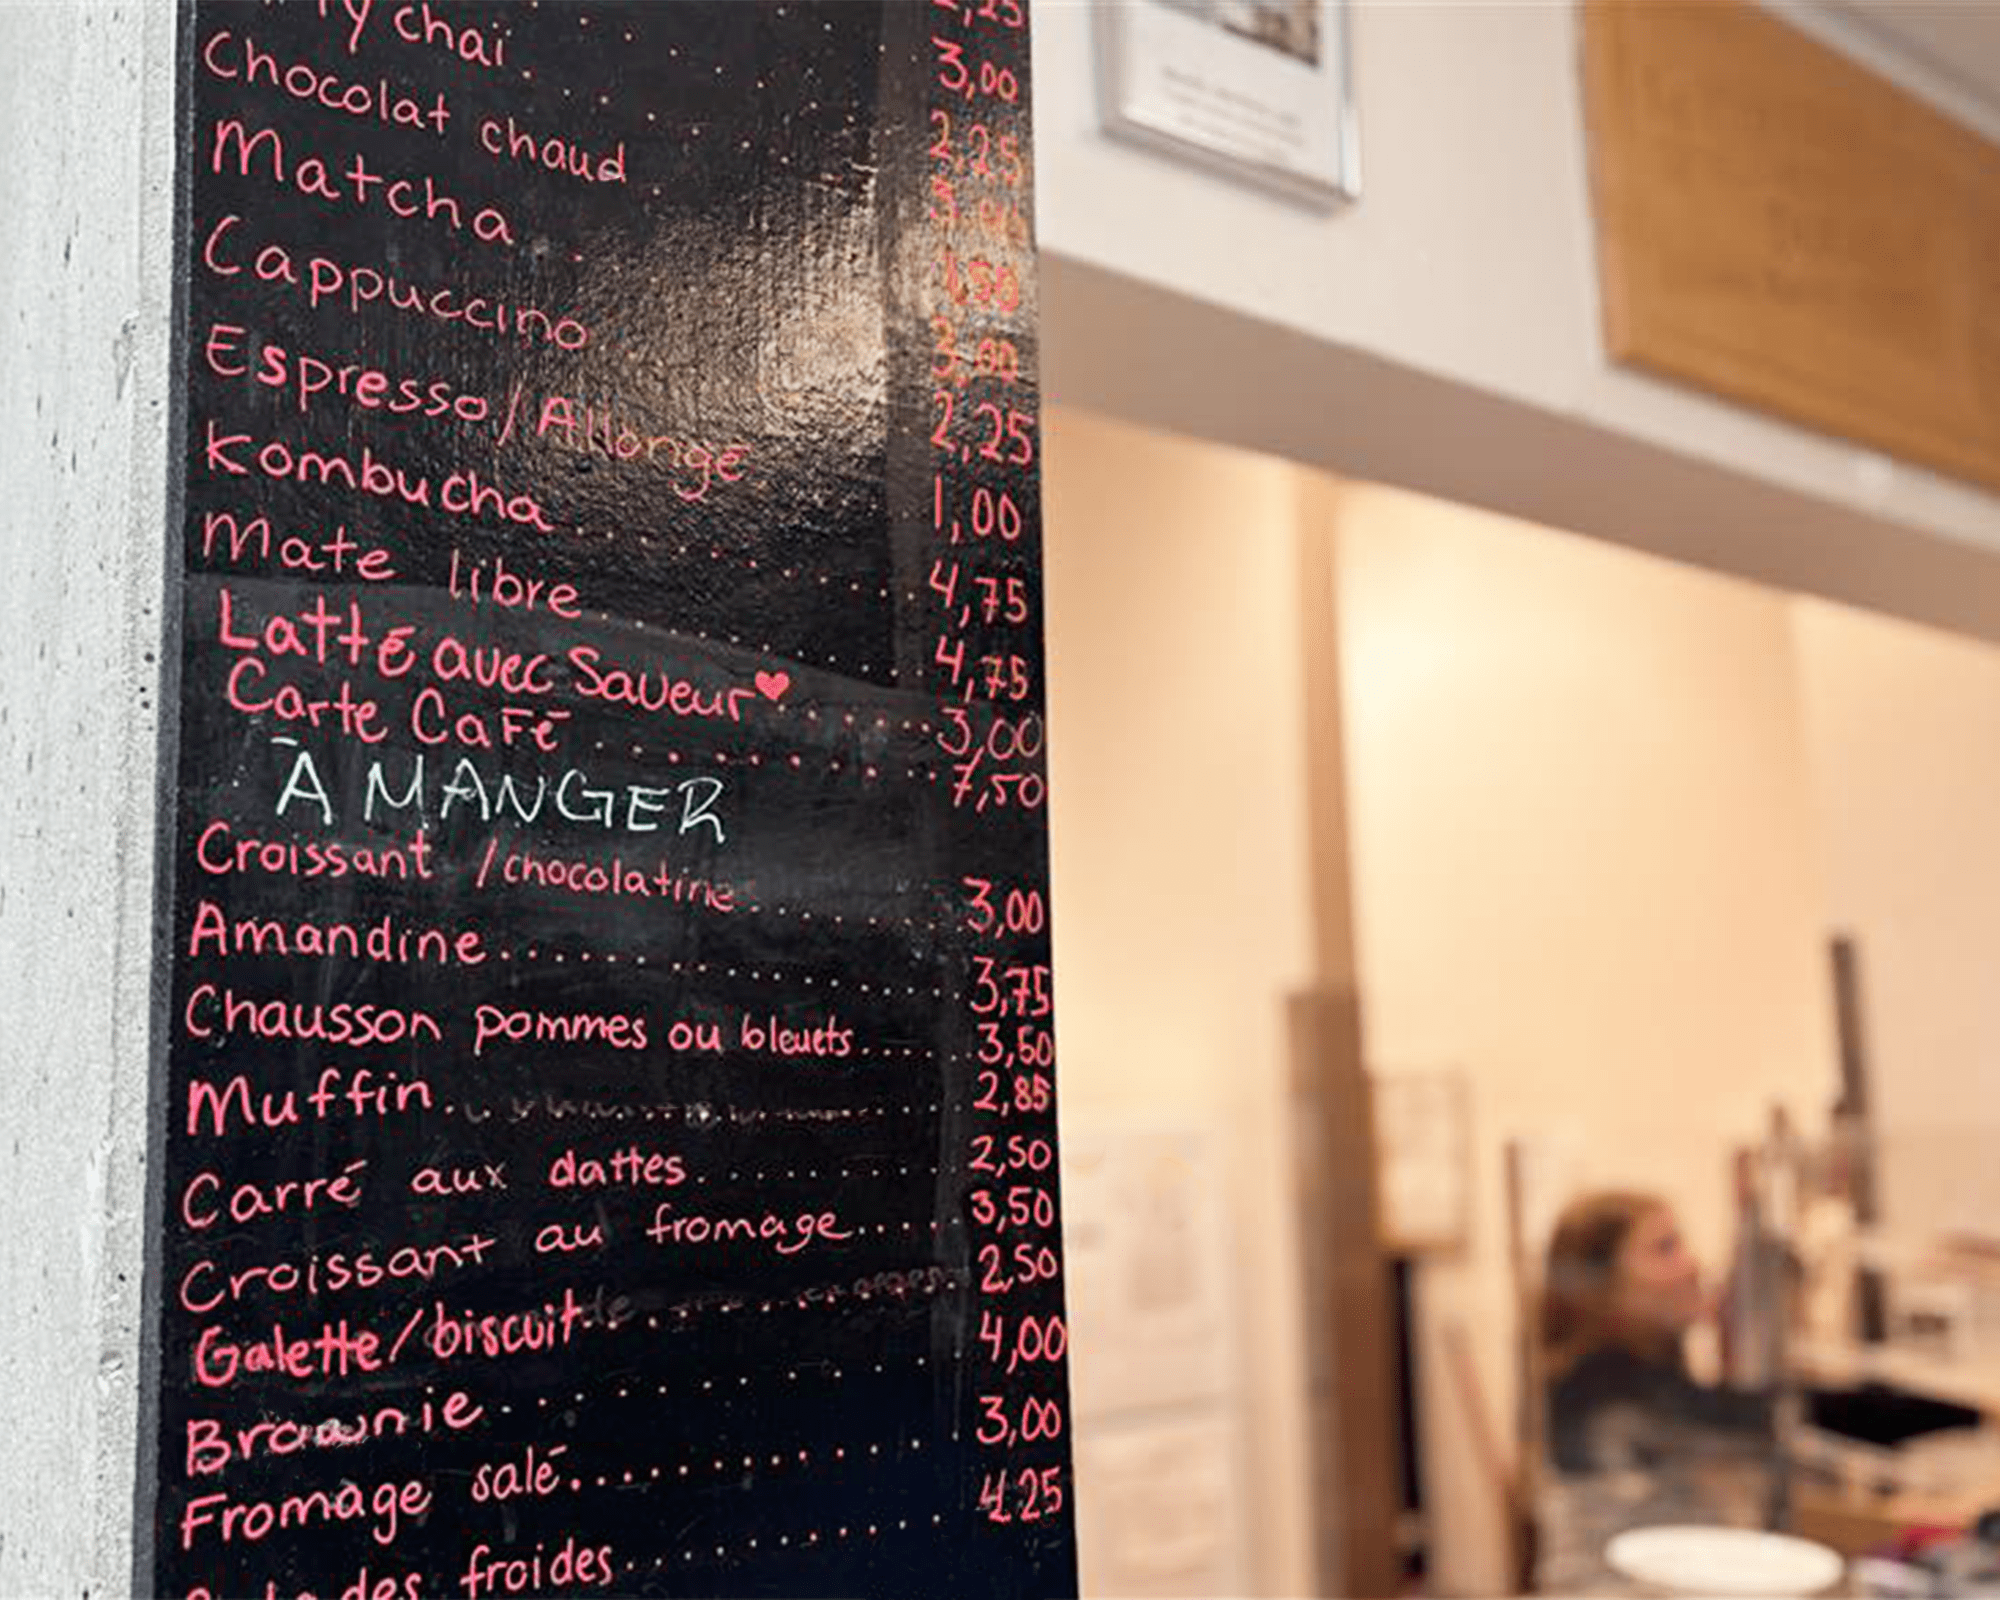 2,25
3,00
2,25
chai . . . . . 3,00
Chocolat chaud . 1,50
Matcha . . 3,00
Cappuccino 2,25
Espresso/Allongé 1,00
Kombucha . . . . . . . . . . 4,75
Mate libre . . . . . . . . . . 4,75
Latté avec Saveur♥ . . . . . . 3,00
Carte Café . . . . . . . . . . 7,50
À MANGER
Croissant /chocolatine . . . . . . . 3,00
Amandine . . . . . . . . . . . . . . 3,75
Chausson pommes ou bleuets . . . . . . 3,50
Muffin . . . . . 2,85
Carré aux dattes . . . . . . . . . 2,50
Croissant au fromage . . . . . 3,50
Galette/biscuit . . . . . 2,50
Brownie . . . . . . . . . . . 4,00
Fromage salé . . . . . . . . . . . 3,00
froides . . . . . . . . . . . 4.25